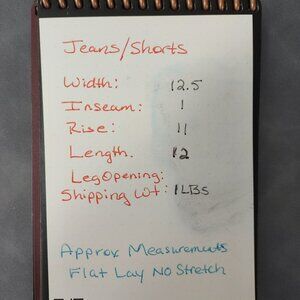 Jeans/Shorts
Width: 12.5
Inseam: 1
Rise: 11
Length. 12
Leg Opening:
Shipping Wt: 1LBs
Approx Measurements
Flat Lay No Stretch